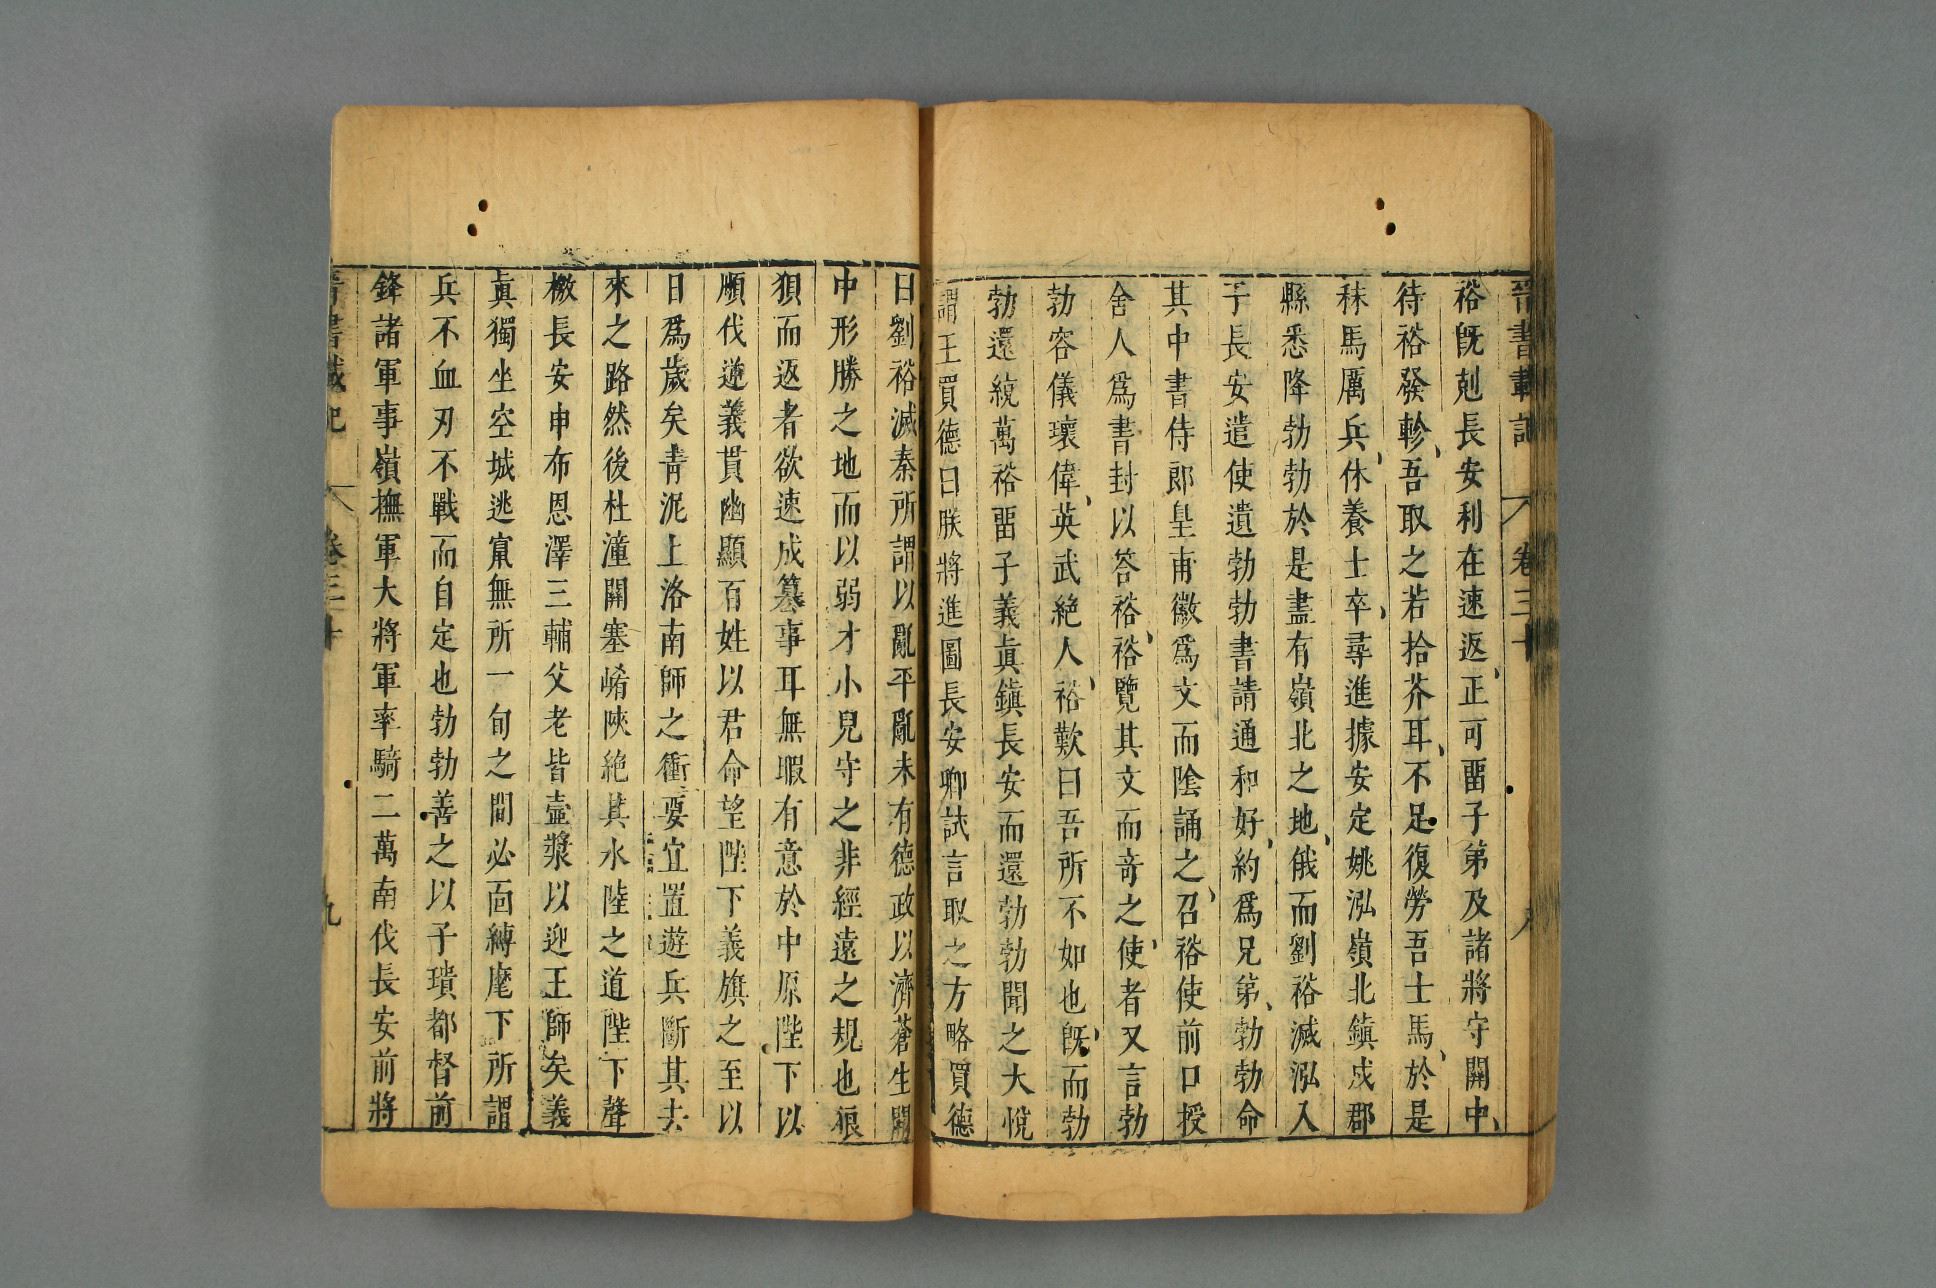 晉書載記 卷三十 八
裕旣剋長安利在速返正可畱子第及諸將守關中
待裕發軫吾取之若拾芥耳不足復勞吾士馬於是
秣馬厲兵休養士卒尋進據安定姚泓嶺北鎭戍郡
縣悉降勃勃於是盡有嶺北之地俄而劉裕滅泓入
于長安遣使遺勃勃書請通和好約爲兄第勃勃命
其中書侍郎皇甫徽爲文而陰誦之召裕使前口授
舍人爲書封以答裕裕覽其文而奇之使者又言勃
勃容儀瓌偉英武絶人裕歎曰吾所不如也旣而勃
勃還統萬裕畱子義眞鎭長安而還勃勃聞之大悅
謂王買德曰朕將進圖長安卿試言取之方略買德
曰劉裕滅秦所謂以亂平亂未有德政以濟蒼生關
中形勝之地而以弱才小兒守之非經遠之規也狼
狽而返者欲速成簒事耳無暇有意於中原陛下以
順伐逆義貫幽顯百姓以君命望陛下義旗之至以
日爲歲矣青泥上洛南師之衝要宜置遊兵斷其去
來之路然後杜潼關塞崤陝絶其水陸之道陛下聲
檄長安申布恩澤三輔父老皆壺漿以迎王師矣義
眞獨坐空城逃竄無所一旬之間必面縛麾下所謂
兵不血刃不戰而自定也勃勃善之以子璝都督前
鋒諸軍事嶺撫軍大將軍率騎二萬南伐長安前將
晉書載記 卷三十 九